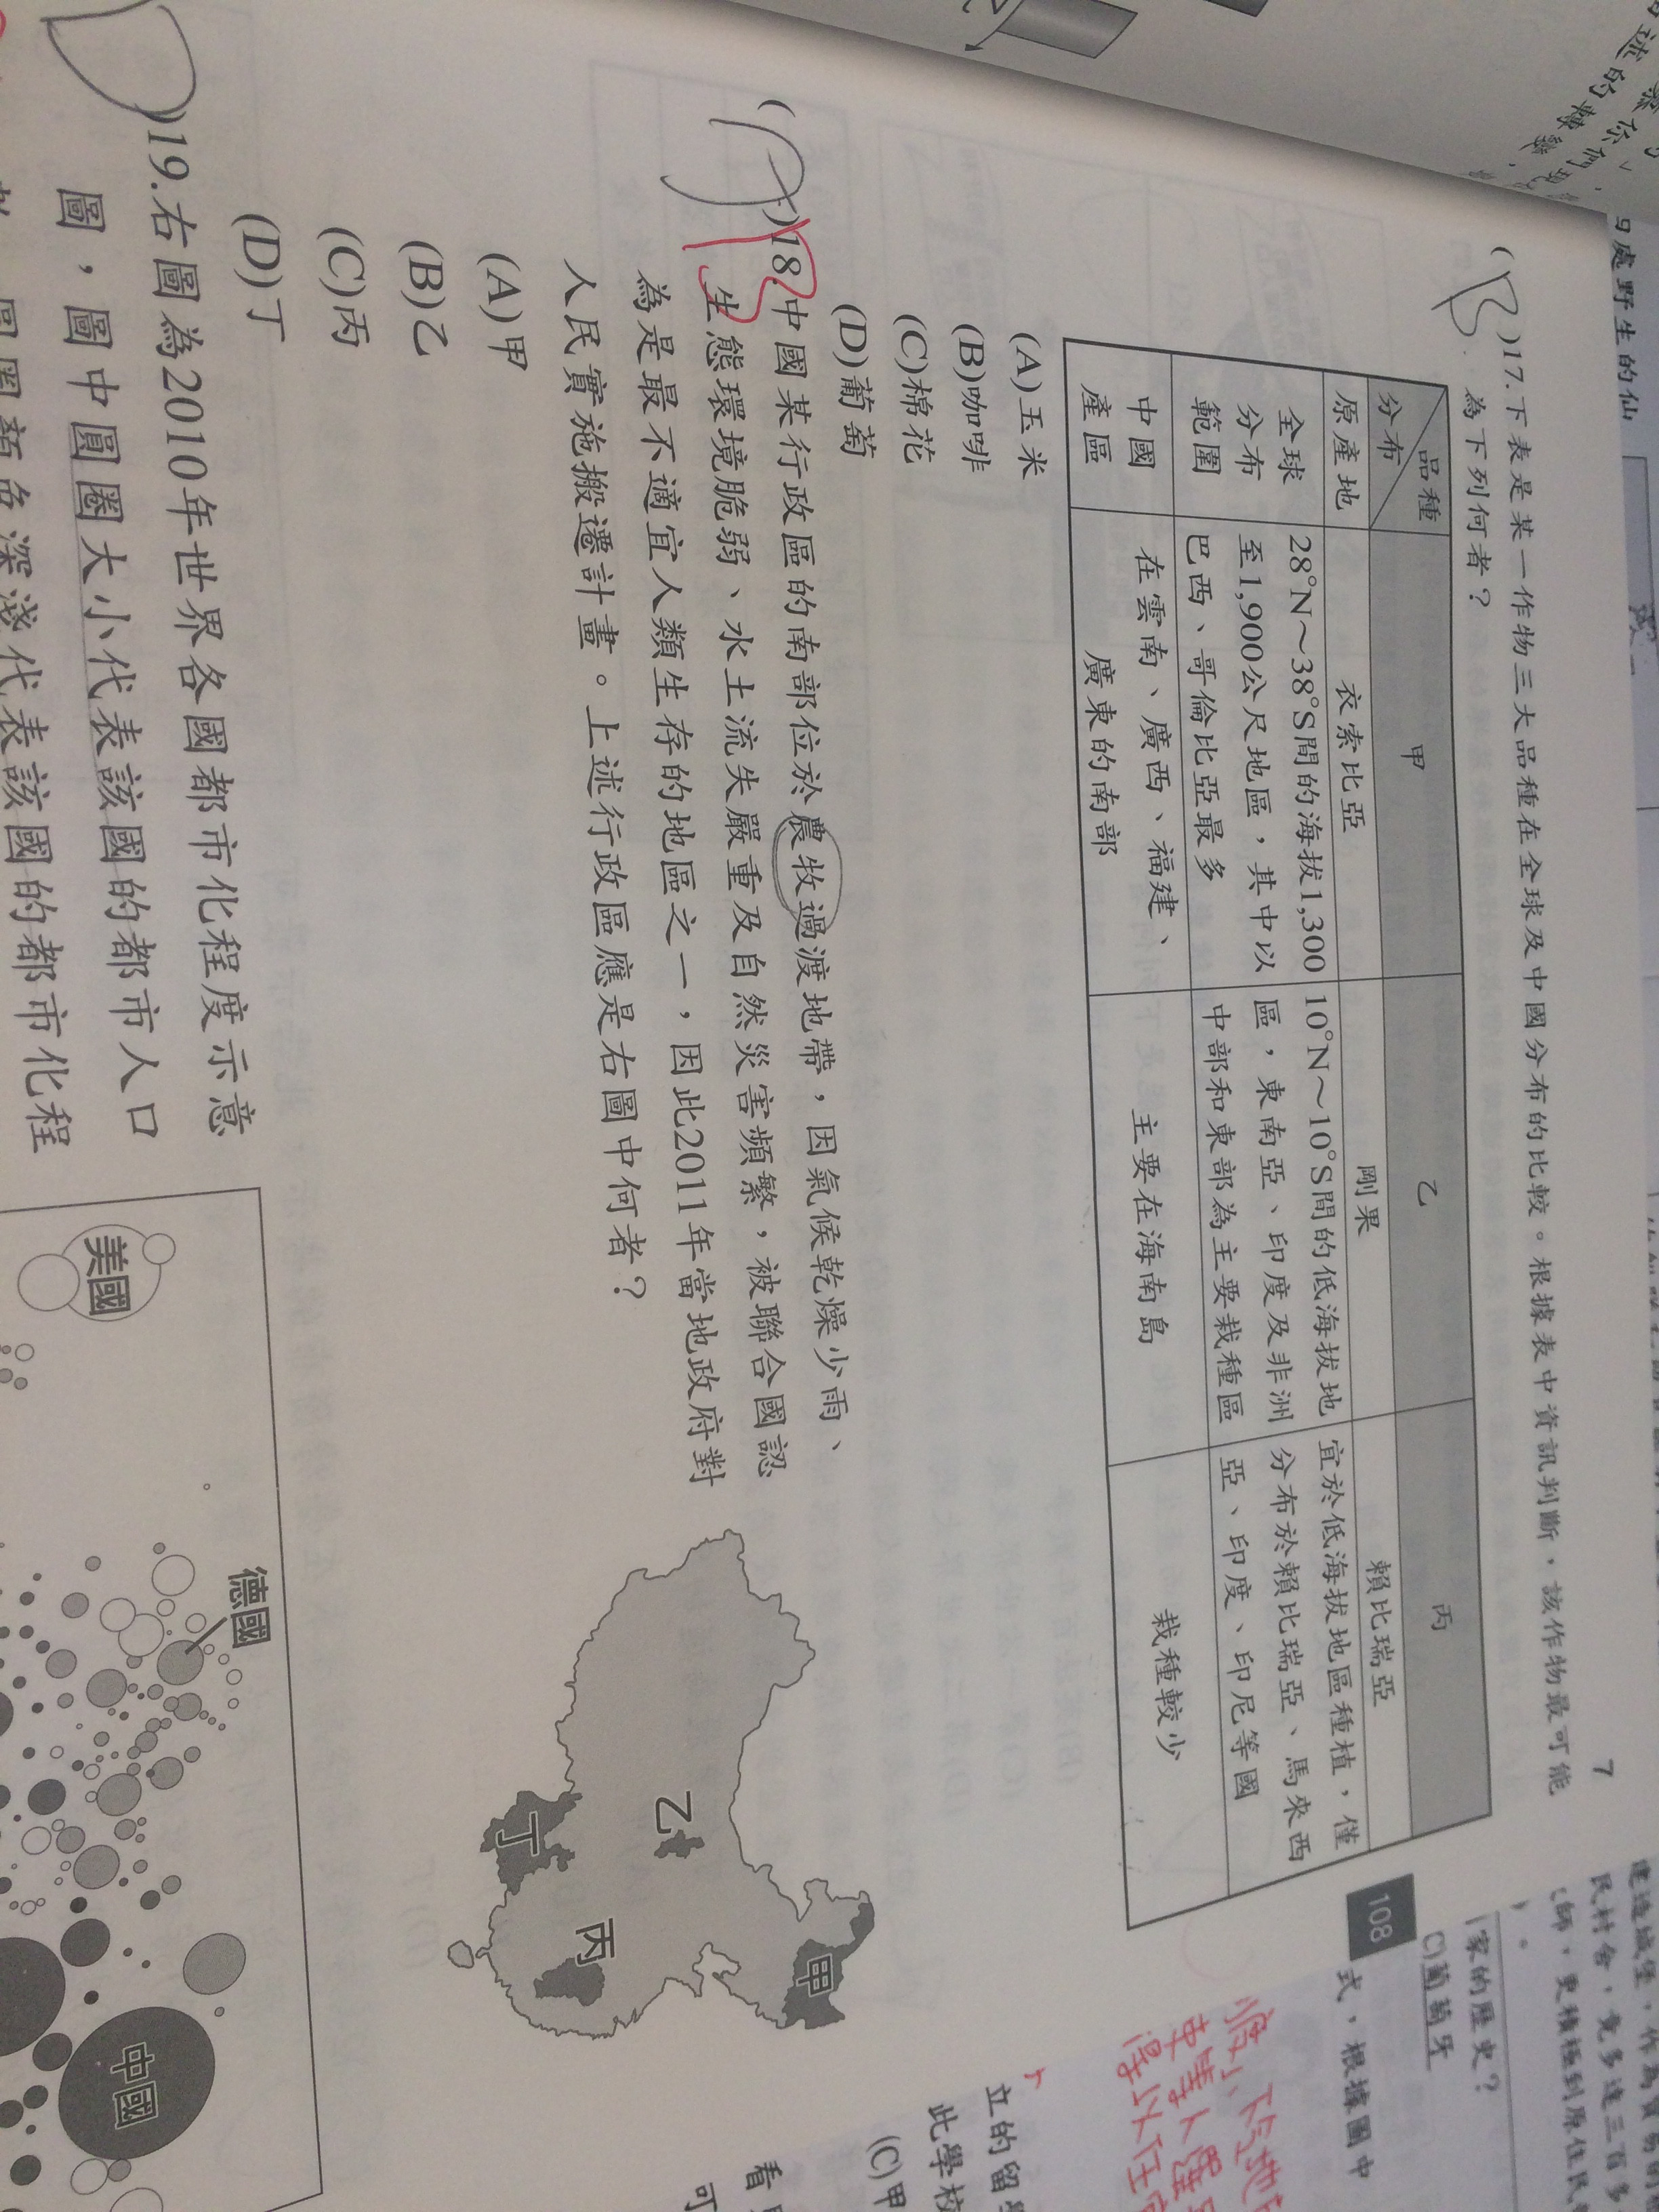 7
(B)17.下表是某一作物三大品種在全球及中國分布的比較。根據表中資訊判斷,該作物最可能
為下列何者?
品種
分布
甲
乙
丙
原產地
衣索比亞
剛果
賴比瑞亞
全球
分布
範圍
28°N~38°S間的海拔1,300
至1,900公尺地區,其中以
巴西、哥倫比亞最多
10°N~10°S間的低海拔地
區,東南亞、印度及非洲
中部和東部為主要栽種區
宜於低海拔地區種植,僅
分布於賴比瑞亞、馬來西
亞、印度、印尼等國
中國
產區
在雲南、廣西、福建、
廣東的南部
主要在海南島
栽種較少
(A)玉米
(B)咖啡
(C)棉花
(D)葡萄
( )18.中國某行政區的南部位於農牧過渡地帶,因氣候乾燥少雨、
生態環境脆弱、水土流失嚴重及自然災害頻繁,被聯合國認
為是最不適宜人類生存的地區之一,因此2011年當地政府對
人民實施搬遷計畫。上述行政區應是右圖中何者?
(A)甲
(B)乙
(C)丙
(D)丁
甲
乙
丙
丁
(D)19.右圖為2010年世界各國都市化程度示意
圖,圖中圓圈大小代表該國的都市人口
圓圈顏色深淺代表該國的都市化程
美國
德國
中國
處野生的仙
民村舍,竟多達三百多
師,更積極到原住民
家的歷史?
C)葡萄牙
108
式,根據圖中
立的留
此學校
(C)甲
看
可